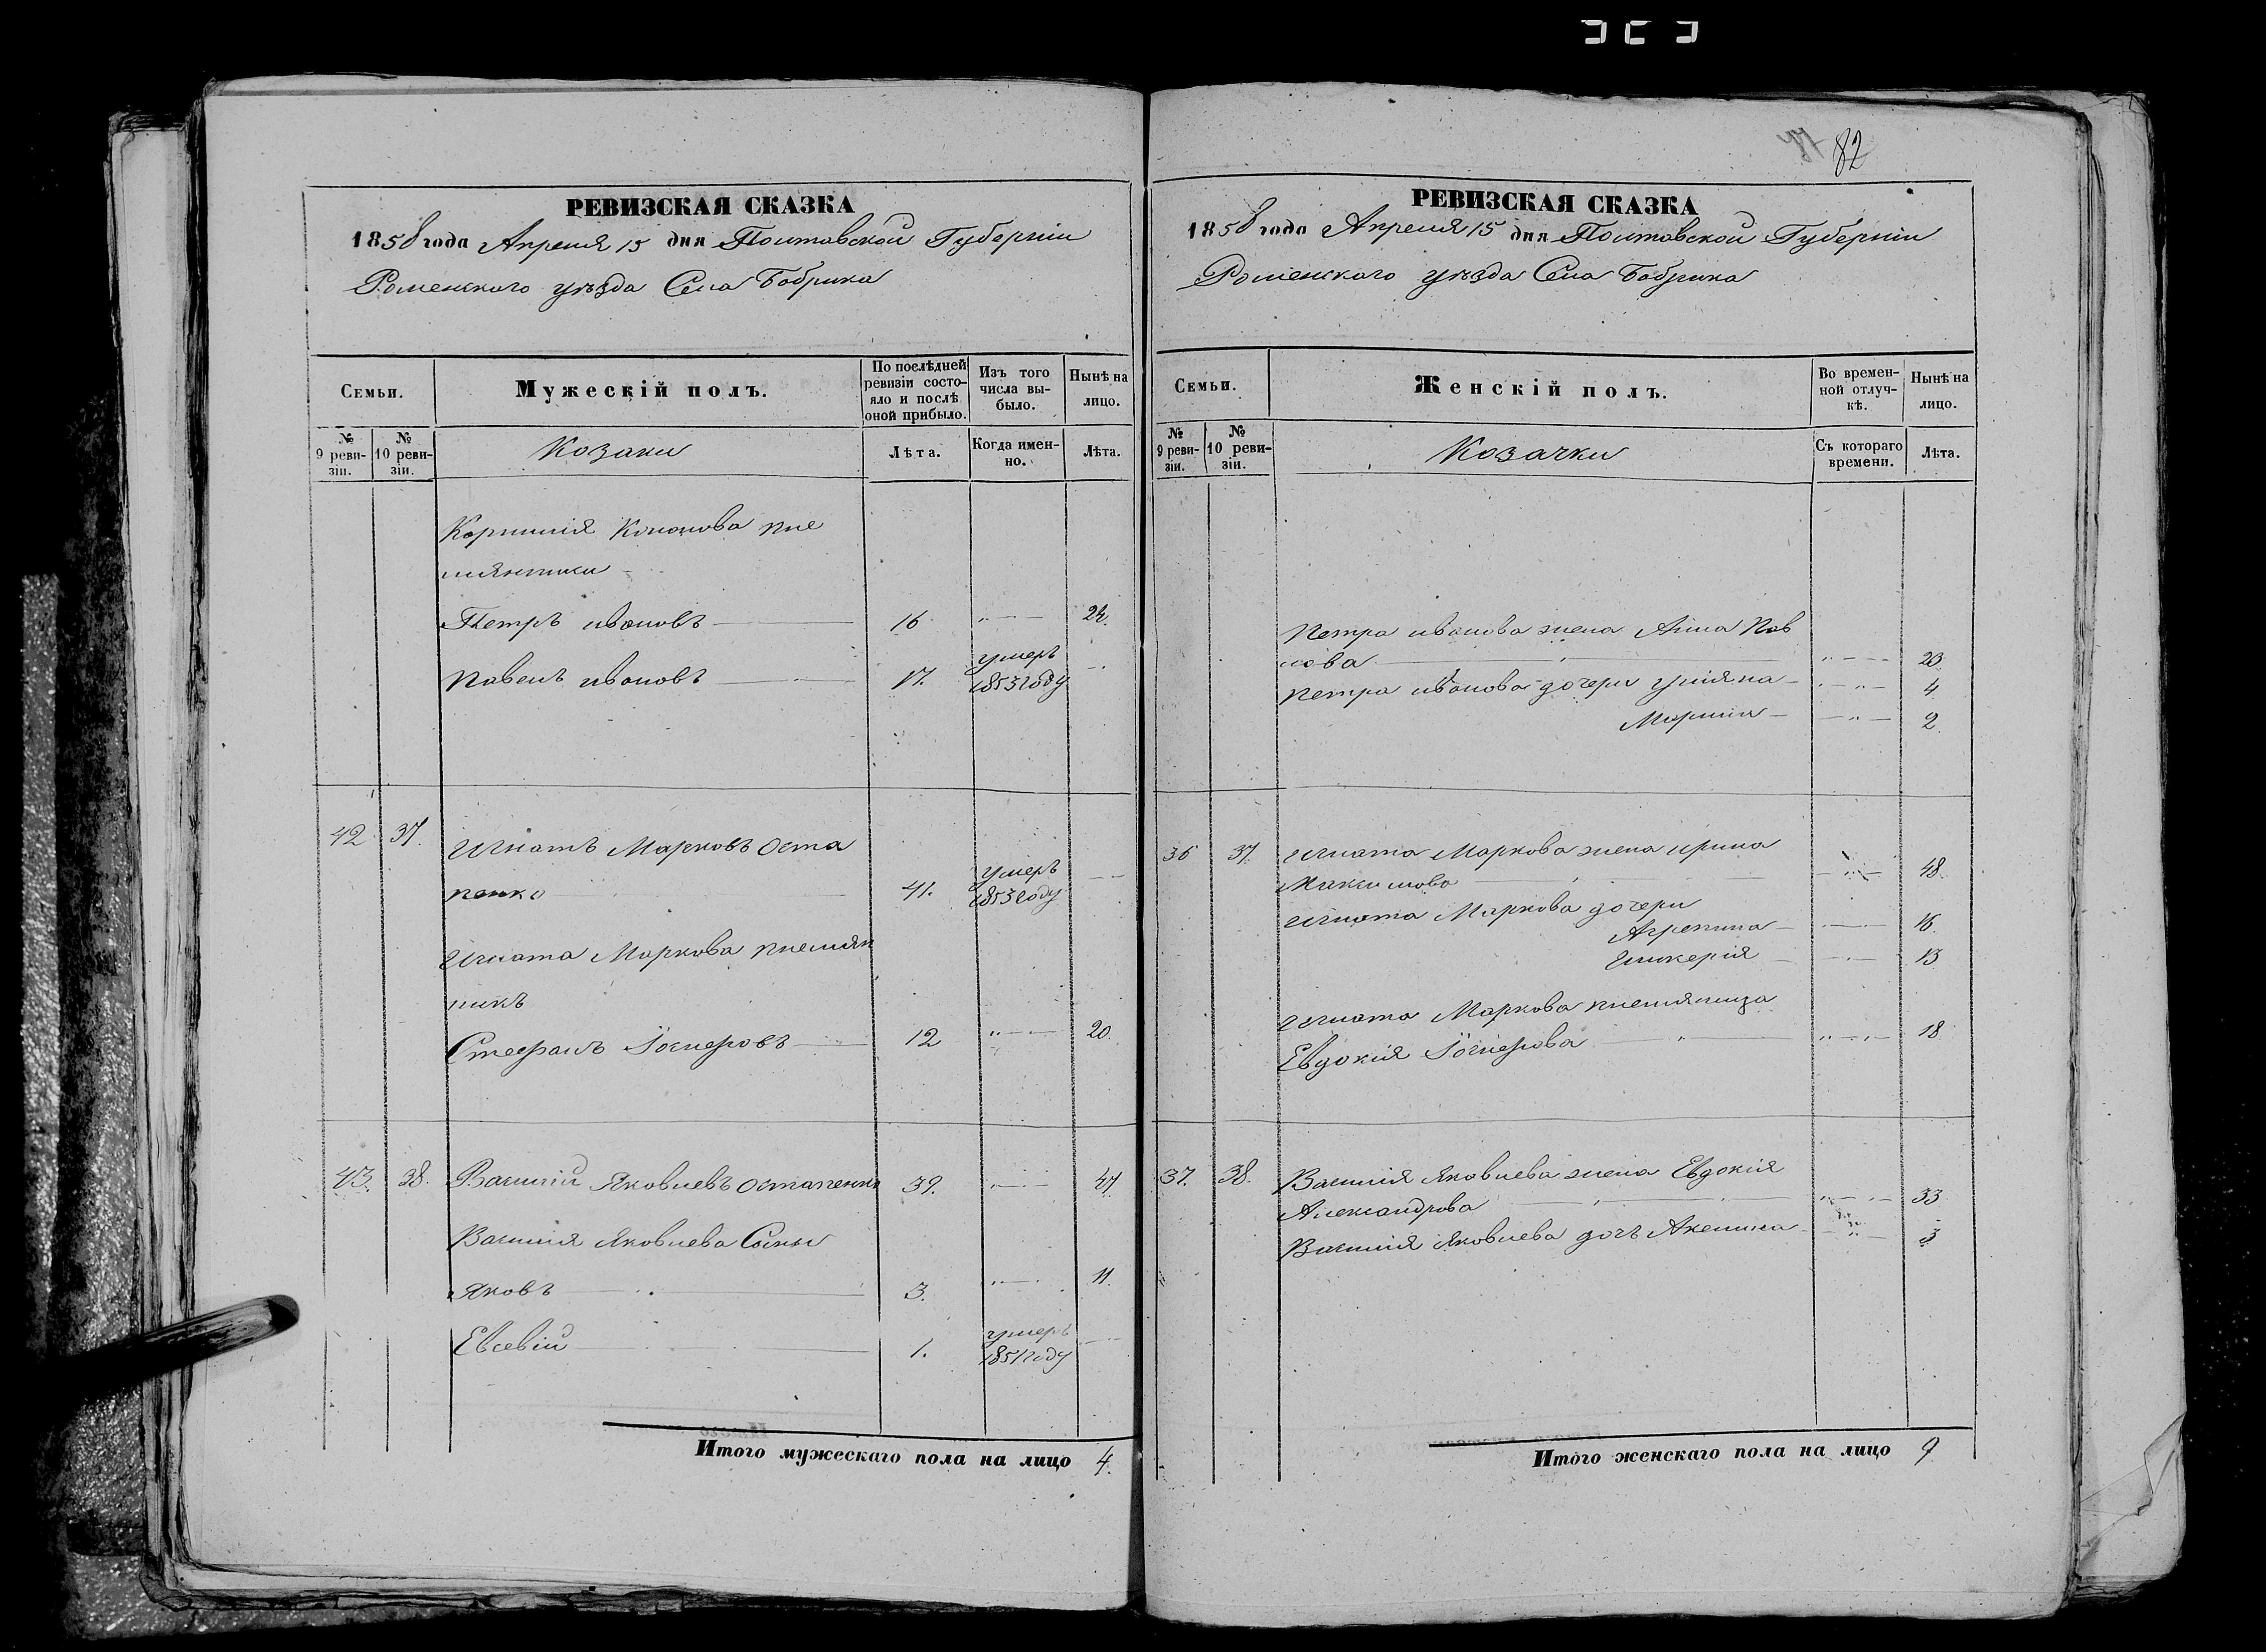 82
РЕВИЗСКАЯ СКАЗКА
1858 года Апреля 15 дня Полтавской Губерніи
Роменского уѣзда Села Бобрика
Семьи.
Мужескій полъ.
По послѣдней ревизіи состояло и послѣ оной прибыло.
Изъ того числа выбыло.
Нынѣ на лицо.
№ 9 ревизіи.
№ 10 ревизіи.
Козаки
Лѣта.
Когда именно.
Лѣта.
Корнилія Кононова пле
мянники
Петръ ивановъ 16 24.
Павелъ ивановъ 17. умеръ 1853 году
42 37. Игнатъ Марковъ Оста
пенко 41. умеръ 1853 году
Игната Маркова племян
никъ
Стефанъ 12 20.
43. 38. Василий Яковлевъ Остапенко 39. 47
Василия Яковлева Сыны
Яковъ 3. 11.
Евсевій 1. умеръ 1851 году
Итого мужескаго пола на лицо 4.
РЕВИЗСКАЯ СКАЗКА
1858 года Апреля 15 дня Полтавской Губерніи
Роменского уѣзда Села Бобрика
Семьи.
Женскій полъ.
Во временной отлучкѣ.
Нынѣ на лицо.
№ 9 ревизіи.
№ 10 ревизіи.
Козачки
Съ котораго времени.
Лѣта.
Петра иванова жена Анна Пав
лова 20
Петра иванова дочери улияна 4
2
36 37. Игната Маркова жена ирина
Максимова 48
Игната Маркова дочери
Агрепина 16.
Гликерія 13
Игната Маркова племяница
Евдокія 18
37. 38. Василия Яковлева жена Евдокія
Александрова 33
Василия Яковлева дочь Акелина 3
Итого женскаго пола на лицо 9